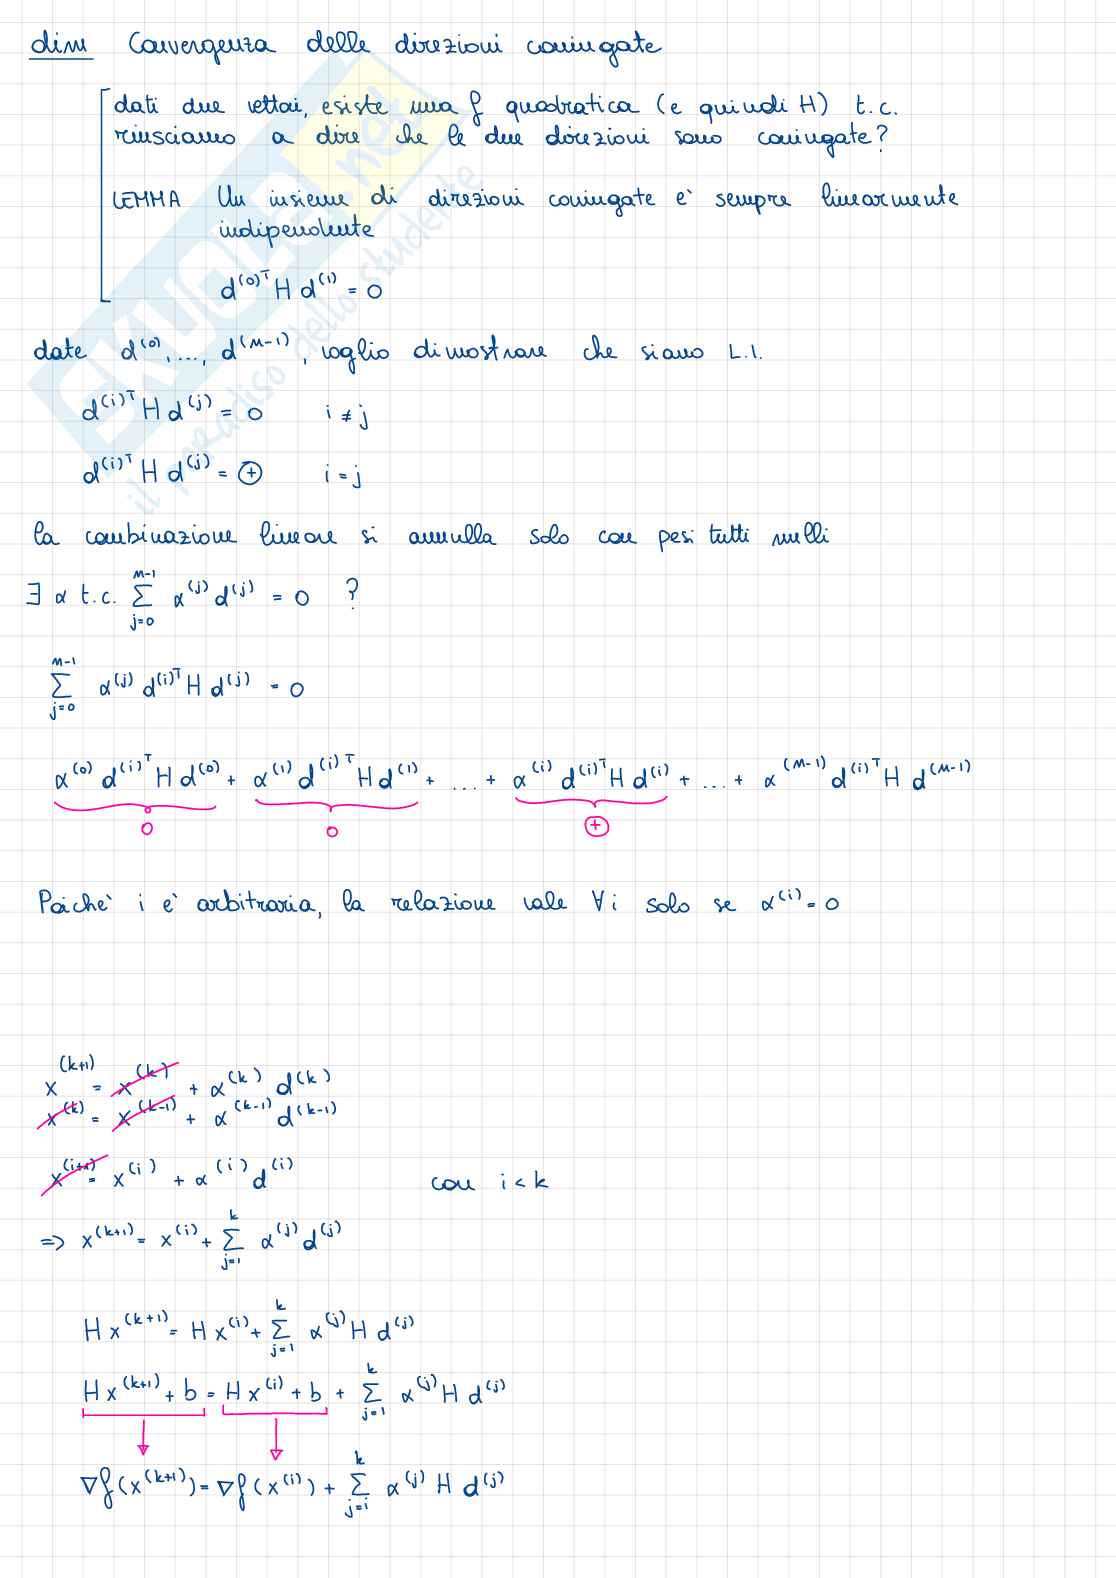 dim Convergenza delle direzioni coniugate
dati due vettori, esiste una f quadratica (e quindi H) t.c.
riusciamo a dire che le due direzioni sono coniugate?
LEMMA Un insieme di direzioni coniugate e' sempre linearmente
indipendente
d⁽⁰⁾ᵀ H d⁽¹⁾ = 0
date d⁽⁰⁾, ..., d⁽ⁿ⁻¹⁾, voglio dimostrare che siano L.I.
d⁽ⁱ⁾ᵀ H d⁽ʲ⁾ = 0 i ≠ j
d⁽ⁱ⁾ᵀ H d⁽ʲ⁾ = ⊕ i = j
la combinazione lineare si annulla solo con pesi tutti nulli
∃ α t.c. ∑_{j=0}^{n-1} α⁽ʲ⁾ d⁽ʲ⁾ = 0 ?
∑_{j=0}^{n-1} α⁽ʲ⁾ d⁽ⁱ⁾ᵀ H d⁽ʲ⁾ = 0
α⁽⁰⁾ d⁽ⁱ⁾ᵀ H d⁽⁰⁾ + α⁽¹⁾ d⁽ⁱ⁾ᵀ H d⁽¹⁾ + ... + α⁽ⁱ⁾ d⁽ⁱ⁾ᵀ H d⁽ⁱ⁾ + ... + α⁽ⁿ⁻¹⁾ d⁽ⁱ⁾ᵀ H d⁽ⁿ⁻¹⁾
0 0 ⊕
Poiche' i e' arbitraria, la relazione vale ∀ i solo se α⁽ⁱ⁾ = 0
x⁽ᵏ⁺¹⁾ = x⁽ᵏ⁾ + α⁽ᵏ⁾ d⁽ᵏ⁾
x⁽ᵏ⁾ = x⁽ᵏ⁻¹⁾ + α⁽ᵏ⁻¹⁾ d⁽ᵏ⁻¹⁾
x⁽ⁱ⁺¹⁾ = x⁽ⁱ⁾ + α⁽ⁱ⁾ d⁽ⁱ⁾ con i < k
=> x⁽ᵏ⁺¹⁾ = x⁽ⁱ⁾ + ∑_{j=1}^{k} α⁽ʲ⁾ d⁽ʲ⁾
H x⁽ᵏ⁺¹⁾ = H x⁽ⁱ⁾ + ∑_{j=1}^{k} α⁽ʲ⁾ H d⁽ʲ⁾
H x⁽ᵏ⁺¹⁾ + b = H x⁽ⁱ⁾ + b + ∑_{j=1}^{k} α⁽ʲ⁾ H d⁽ʲ⁾
∇f(x⁽ᵏ⁺¹⁾) = ∇f(x⁽ⁱ⁾) + ∑_{j=i}^{k} α⁽ʲ⁾ H d⁽ʲ⁾
SKUOLA.net
il paradiso dello studente